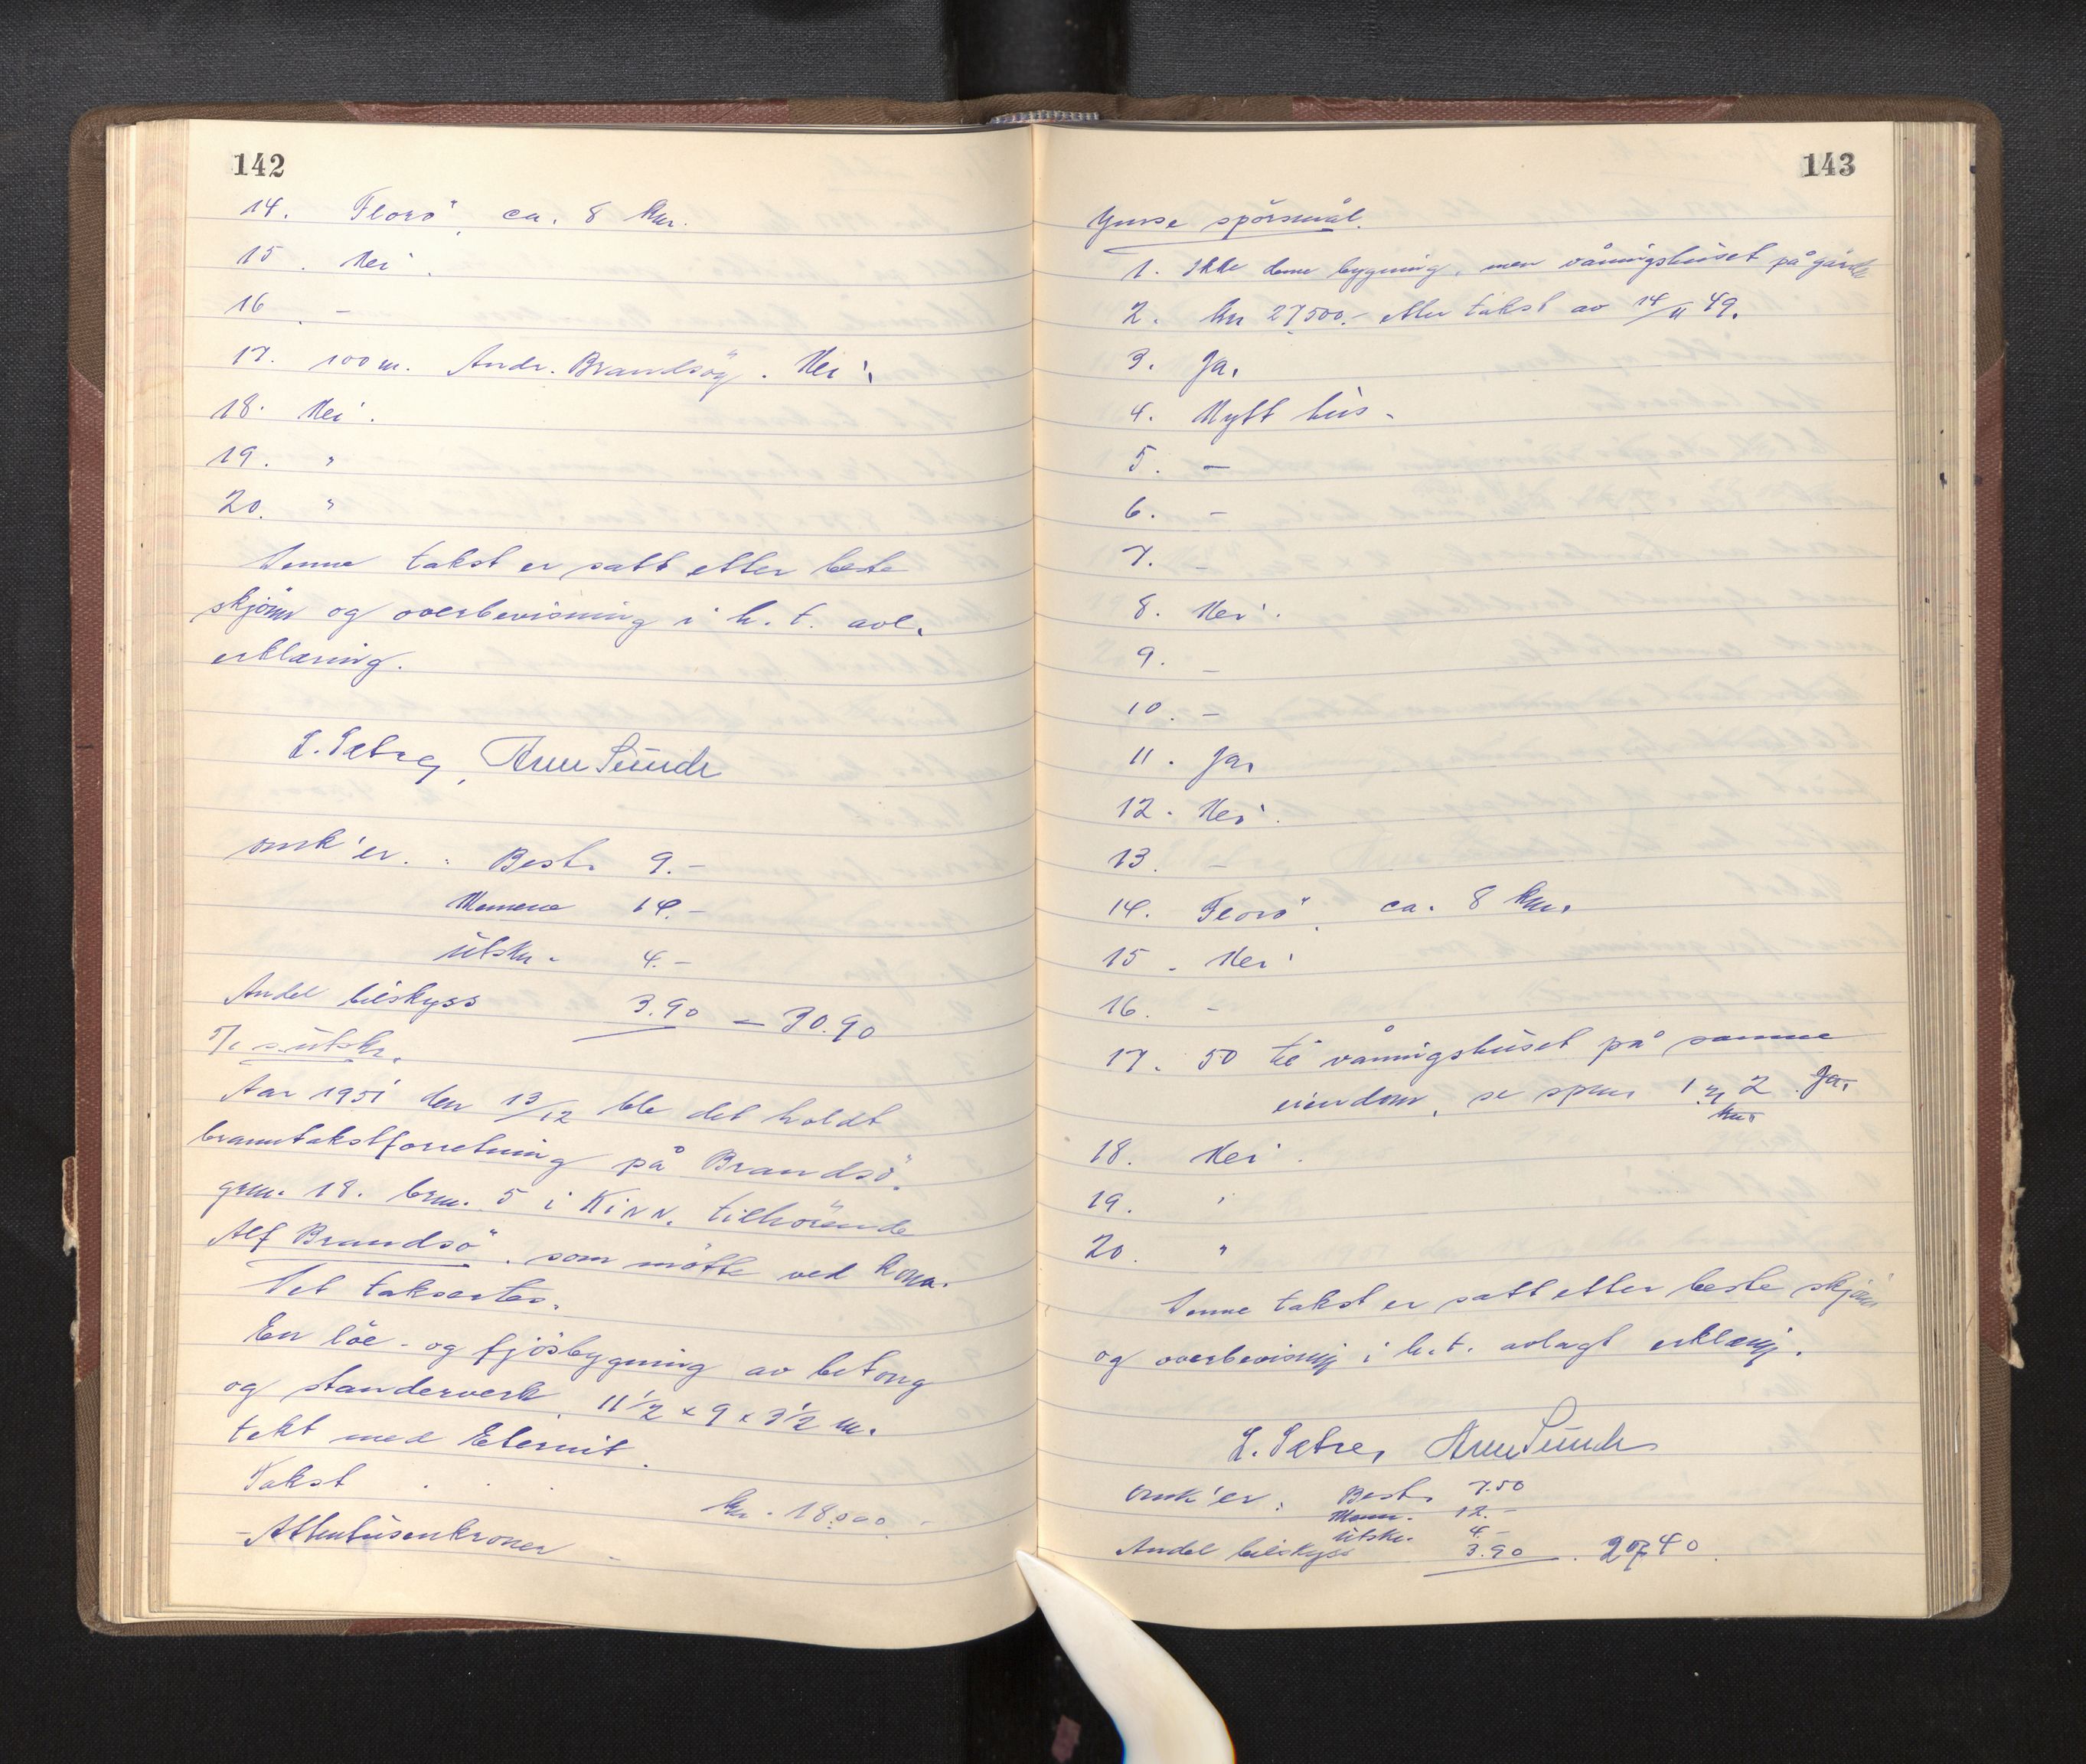 142
14. Florö, ca. 8 km.
15. Nei.
16. -
17. 100 m. Andr. Brandsöy. Nei.
18. Nei.
19. "
20. "
Denne takst er satt etter beste
skjönn og overbevisning i h. t. avl.
erklæring.
L. Sætre, Arne Sunde
Omk'er. : Best. 9.-
Mennene 14.-
Utskr. 4.-
Andel bilskyss 3.90 = 30.90
utskr.
Aar 1951 den 13/12 ble det holdt
branntakstforretning på Brandsö.
grnr. 18. brnr. 5 i Kinn, tilhörende
Alf Brandsö, som mötte ved kona.
Det taksertes.
En löe- og fjösbygning av betong
og standerverk, 11 1/2 x 9 x 3 1/2 m.
tekt med Eternit.
Takst . . . kr. 18.000.-
- Attentusenkroner -
143
Ymse spörsmål.
1. Ikke denne bygning, men våningshuset på gården
2. kr 27500.- etter takst av 14/11 49.
3. Ja.
4. Nytt hus.
5. -
6. -
7. -
8. Nei.
9. -
10. -
11. Ja,
12. Nei.
13. -
14. Florö, ca. 8 km.
15. Nei
16. -
17. 50 til våningshuset på samme
eiendom, se spm 1 og 2. Ja,
18. Nei.
19. "
20. "
Denne takst er satt etter beste skjönn
og overbevisning i h.t. avlagt erklæring.
L. Sætre, Arne Sunde
Omk'er: Best. 7.50
Menn. 12.-
Utskr. 4.-
Andel bilskyss 3.90 . 27.40